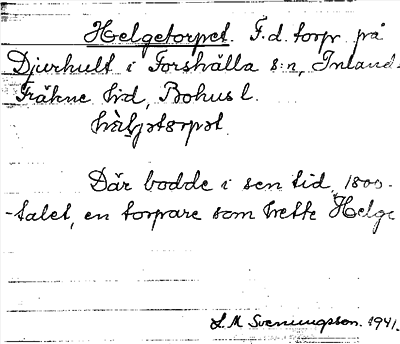 Helgetorpet. F.d. torp på
Djurhult i Forshälla s:n, Inland-
Fräkne hd, Bohusl.
Där bodde i sen tid, 1800-
-talet, en torpare som hette Helge
S. M Svenungsson. 1941.